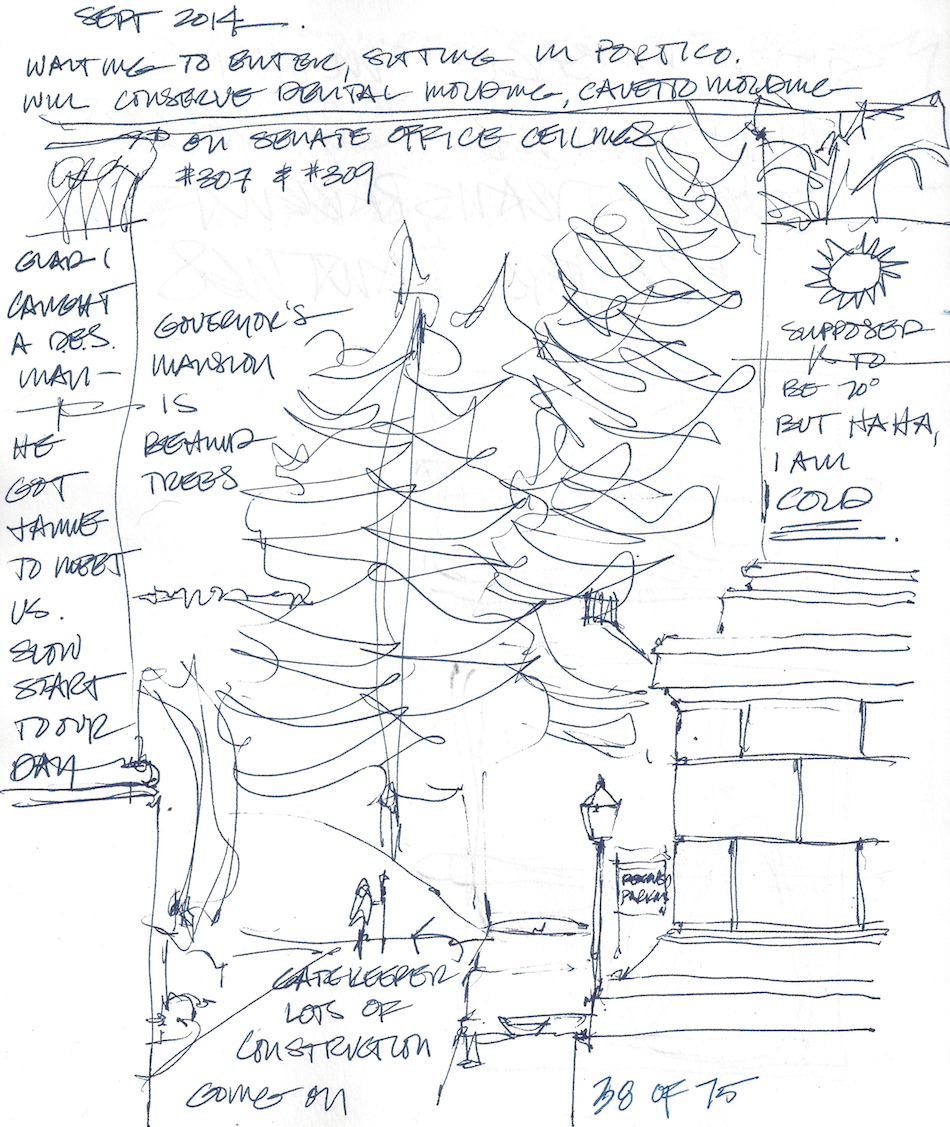 SEPT 2014.
WAITING TO ENTER, SITTING IN PORTICO.
WILL CONSERVE DENTAL MOLDING, CAVETTO MOLDING
ON SENATE OFFICE CEILINGS
#307 & #309
GLAD I
CAUGHT
A D.E.S.
MAN —
HE
GOT
JAMIE
TO MEET
US.
SLOW
START
TO OUR
DAY
GOVERNOR'S
MANSION
IS
BEHIND
TREES
SUPPOSED
TO
BE 70°
BUT HAHA,
I AM
COLD.
PARKING
GATEKEEPER
LOTS OF
CONSTRUCTION
GOING ON
38 OF 75